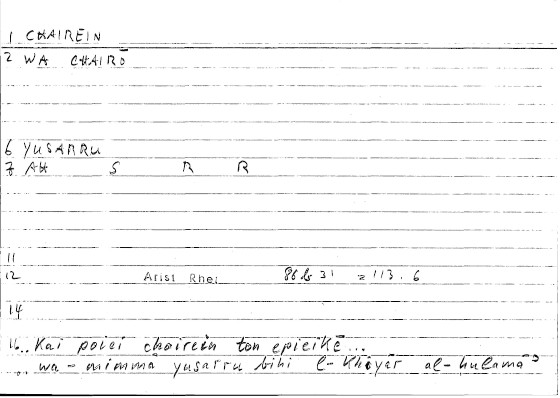 1 CHAIREĪN
2 WA CHAIRŌ
6 YUSARRU
7 AH S R R
11
12 Arist Rhet 86b 31 = 113.6
14
16.. Kai poiei chairein ton epieikē...
.. wa-mimmā yusarru bihi l-khiyār al-hulamāʾ